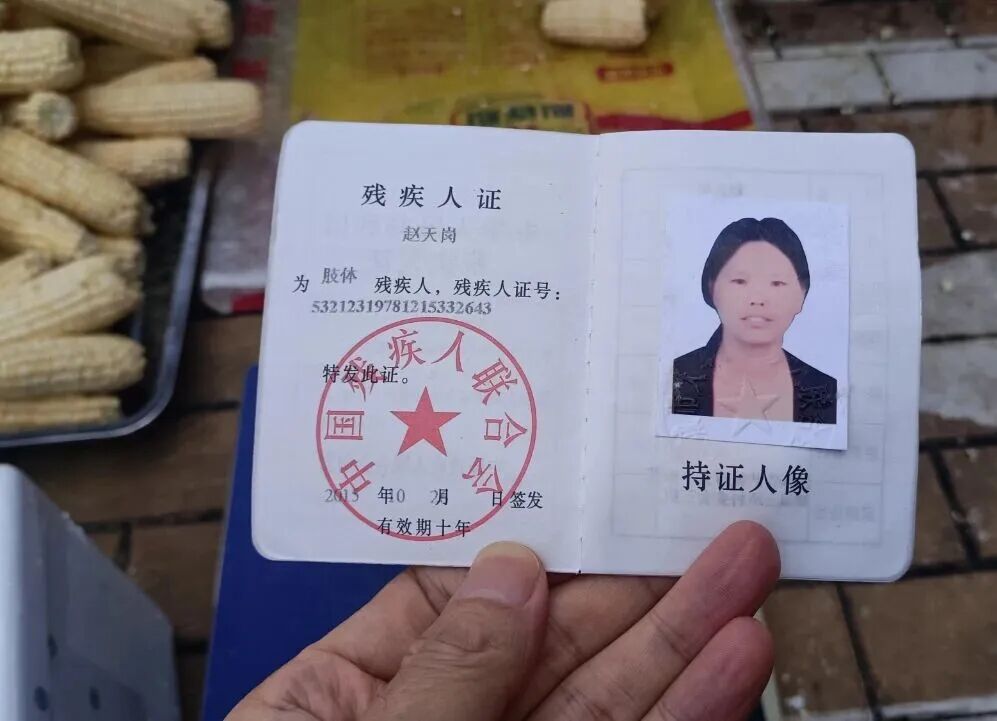 残疾人证
赵天岗
为 肢体 残疾人，残疾人证号：
53212319781215332643
特发此证。
中国残疾人联合会
2015 年0 2月 日签发
有效期十年
持证人像